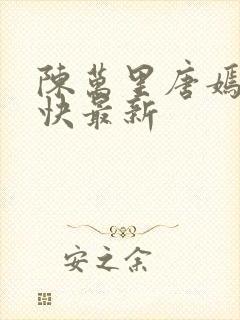 陳萬里唐嫣
快最新
安之余